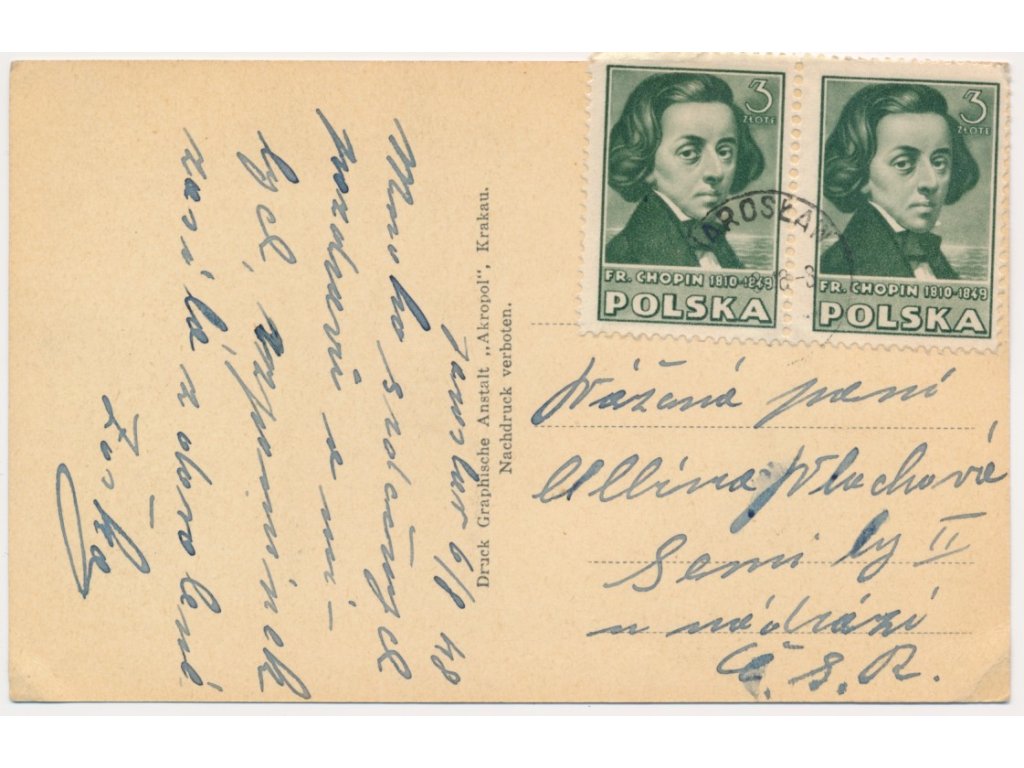 Jaroslav 6/8 48
Mnoho srdečných
pozdravů a mi-
lých vzpomínek
zasílá z dovolené
Zdeňka
Druck Graphische Anstalt „Akropol", Krakau.
Nachdruck verboten.
3
ZŁOTE
FR. CHOPIN 1810-1849
POLSKA
3
ZŁOTE
FR. CHOPIN 1810-1849
POLSKA
JAROSŁAW
Vážená paní
Vlachová
Semily II
u nádraží
Č. S. R.